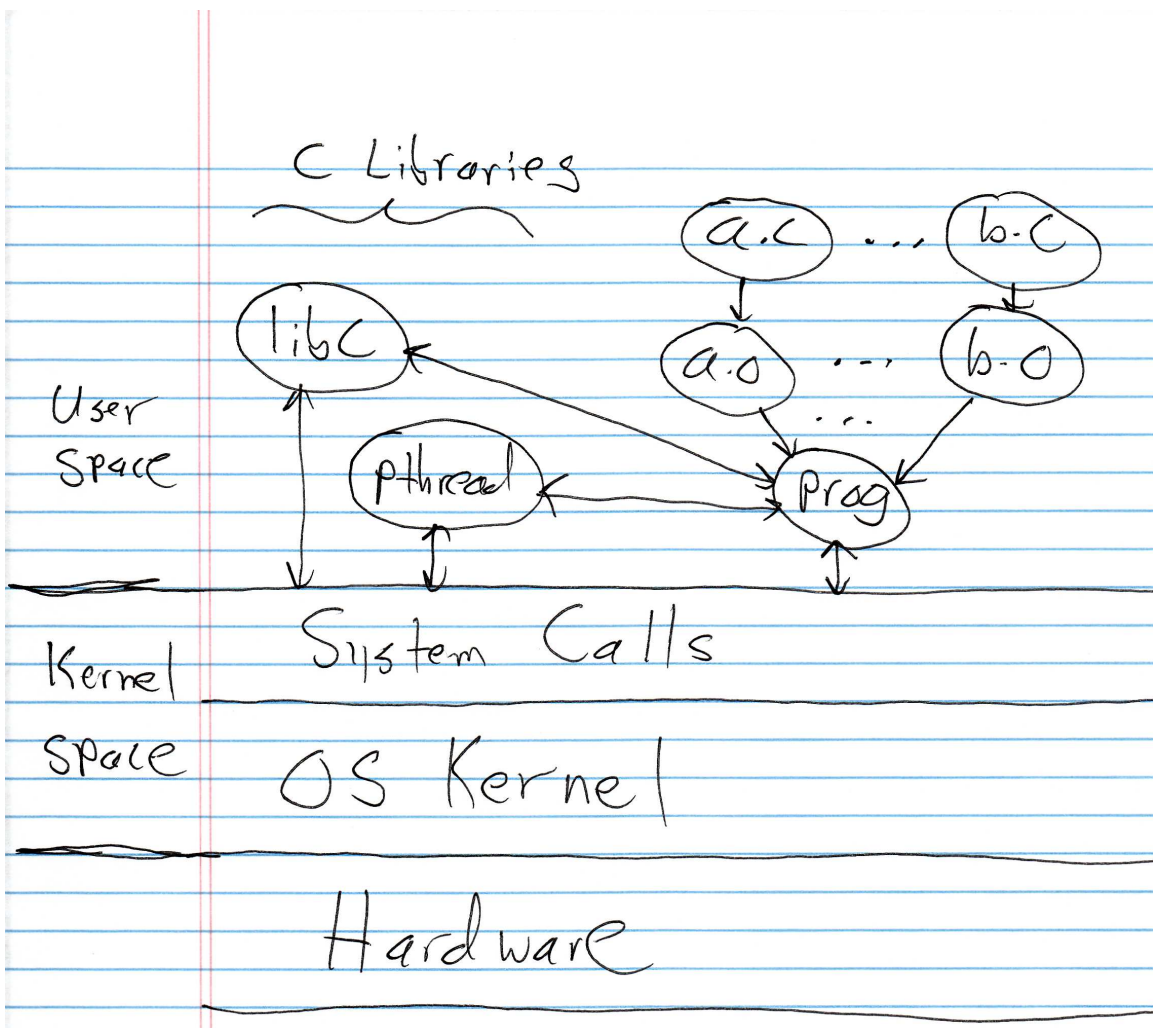 C Libraries
a.c ... b.c
libc
a.o ... b.o
...
User
space
pthread
prog
System Calls
Kernel
space
OS Kernel
Hardware